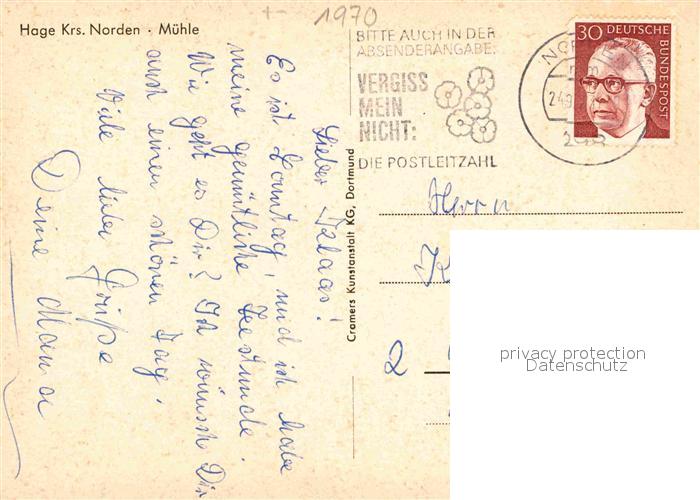 Hage Krs. Norden · Mühle
1970
BITTE AUCH IN DER
ABSENDERANGABE:
VERGISS
MEIN
NICHT:
DIE POSTLEITZAHL
30 DEUTSCHE
BUNDESPOST
Lieber
Es ist Sonntag, und ich habe
meine gemütliche Teestunde.
Wie geht es Dir? Ich wünsche Dir
auch einen schönen Tag.
Viele liebe Grüße
Deine
Cramers Kunstanstalt KG, Dortmund
Herrn
K
2
privacy protection
Datenschutz